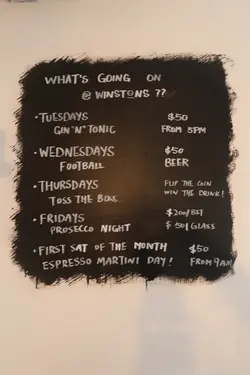 WHAT'S GOING ON
@ WINSTONS ??
• TUESDAYS $50
GIN "N" TONIC FROM 5PM
• WEDNESDAYS $50
FOOTBALL BEER
• THURSDAYS FLIP THE COIN
TOSS THE BOSS WIN THE DRINK!
• FRIDAYS $200/BTL
PROSECCO NIGHT $50/GLASS
• FIRST SAT OF THE MONTH $50
ESPRESSO MARTINI DAY! FROM 9AM